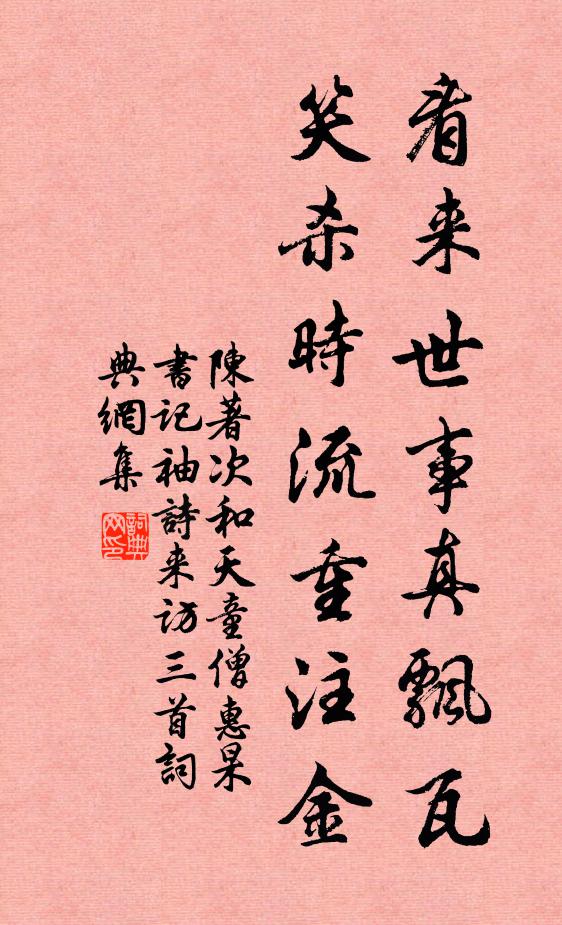 看来世事真飄瓦
笑杀時流重注金
陳著次和天童僧惠杲
書记袖詩来访三首詞
典網集
詞典
网印